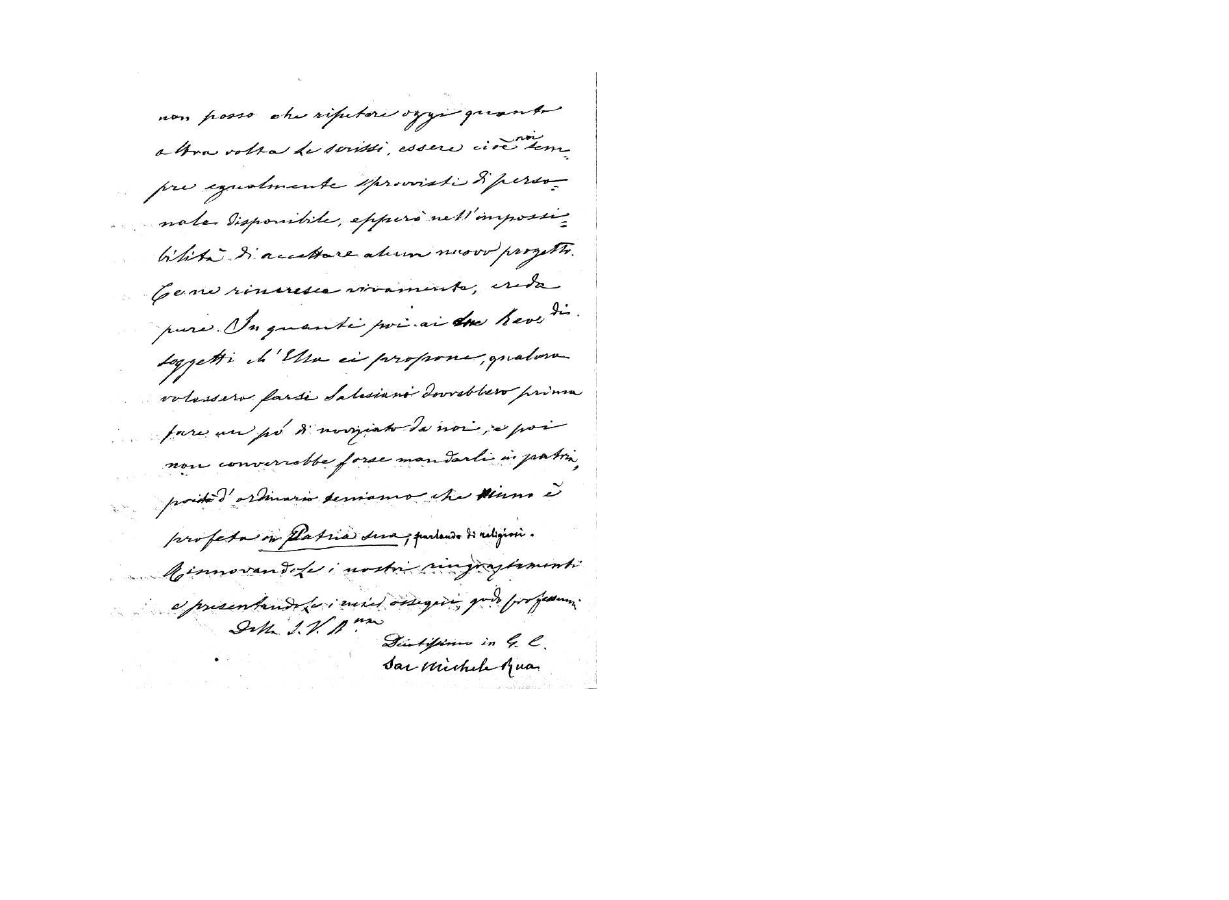 non posso che ripetere oggi quanto
altra volta Le scrissi, essere cioè noi sem-
pre egualmente sprovvisti di perso=
nale disponibile, epperò nell'impossi=
bilità di accettare alcun nuovo progetto.
Ce ne rincresce vivamente, creda
pure. In quanti poi ai due Rev.di
soggetti ch'Ella ci propone, qualora
volessero farsi Salesiani dovrebbero prima
fare un pó di noviziato da noi, e poi
non converrebbe forse mandarli in patria,
poichè d'ordinario teniamo che niuno è
profeta in Patria sua, parlando di religiosi.
Rinnovandole i nostri ringraziamenti
e presentandole i miei ossequi, godo professarmi
Della S. V. R.ma
Devotissimo in G. C.
Sac Michele Rua